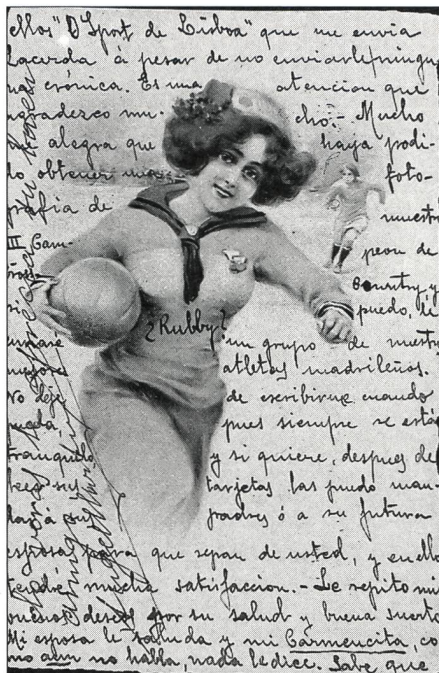 ellos "O Sport de Lisboa" que me envia
Lacerda á pesar de no enviarle ningu-
na crónica. Es una atencion que
agradezco mu- cho.- Mucho
alegra que haya podi-
do obtener una foto-
grafía de nuestro
Cam- peon de
Country y
si puedo, le
¿Rubby?
un grupo de nuestros
mejores atletas madrileños.
No deje de escribirme cuando
pueda pues siempre se está
tranquilo y si quiere, despues de
leer sus tarjetas las puedo man-
dar á sus padres ó a su futura
esposa para que sepan de usted, y en ello
tendré mucha satisfaccion.- Le repito mis
buenos deseos por su salud y buena suerte
Mi esposa le saluda y mi Carmencita, co-
mo aun no habla, nada le dice. Sabe que